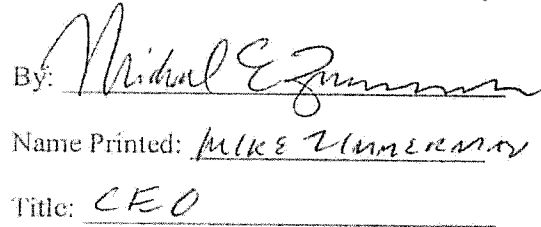 By: Michael E Zimmerman
Name Printed: MIKE ZIMMERMAN
Title: CEO